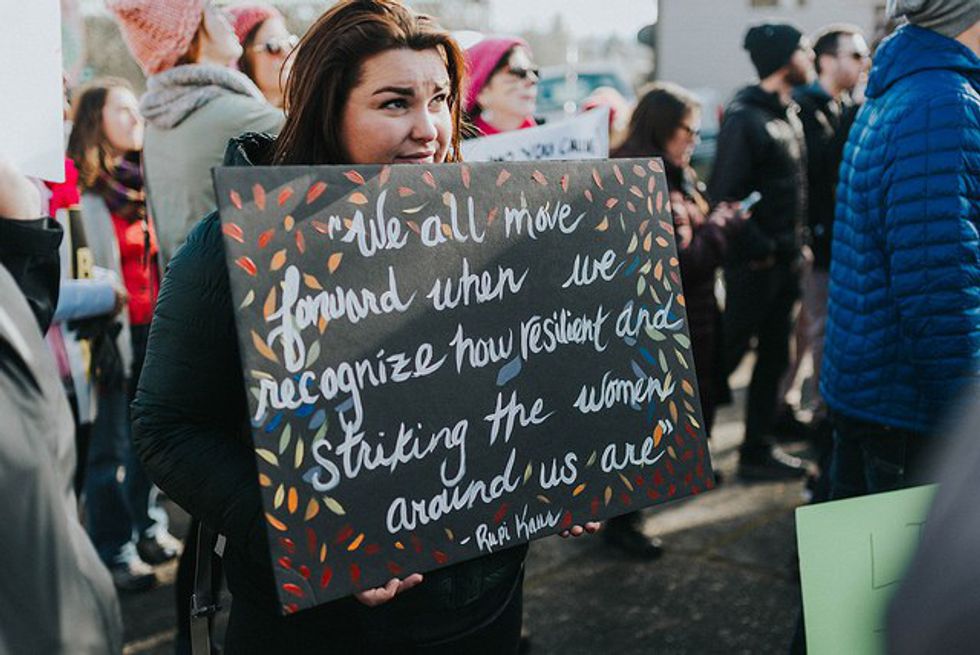 YOU CALL
"We all move
forward when we
recognize how resilient and
striking the women
around us are"
- Rupi Kaur